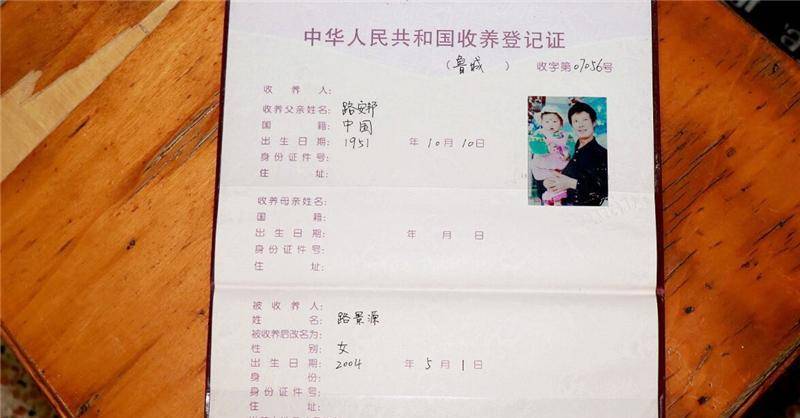 中华人民共和国收养登记证
（鲁城） 收字第07056号
收养人：
收养父亲姓名：路安邦
国籍：中国
出生日期：1951年10月10日
身份证件号：
住址：
收养母亲姓名：
国籍：
出生日期： 年 月 日
身份证件号：
住址：
被收养人：
姓名：路景源
被收养后改名为：
性别：女
出生日期：2004年5月1日
身份：
身份证件号：